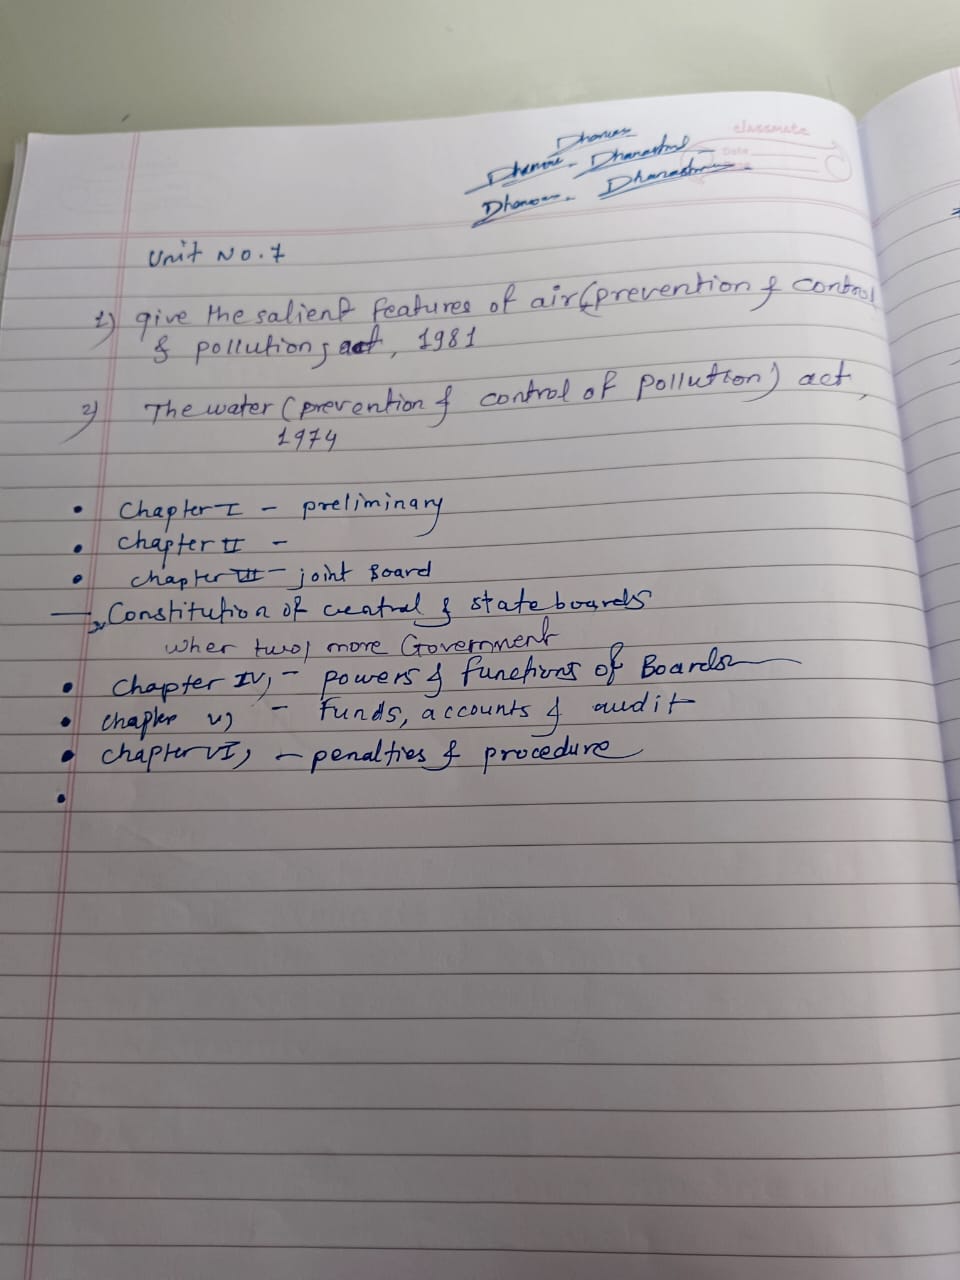 classmate
Date
Unit No. 7
1) give the salient features of air (prevention & control
& pollution; act, 1981
2) The water (prevention & control of pollution) act,
1974
• Chapter I - preliminary
• Chapter II -
• Chapter III - joint Board
Constitution of central & state boards
wher two/ more Government
• Chapter IV, - powers & functions of Boards
• Chapter V, - Funds, accounts & audit
• Chapter VI, - penalties & procedure
•